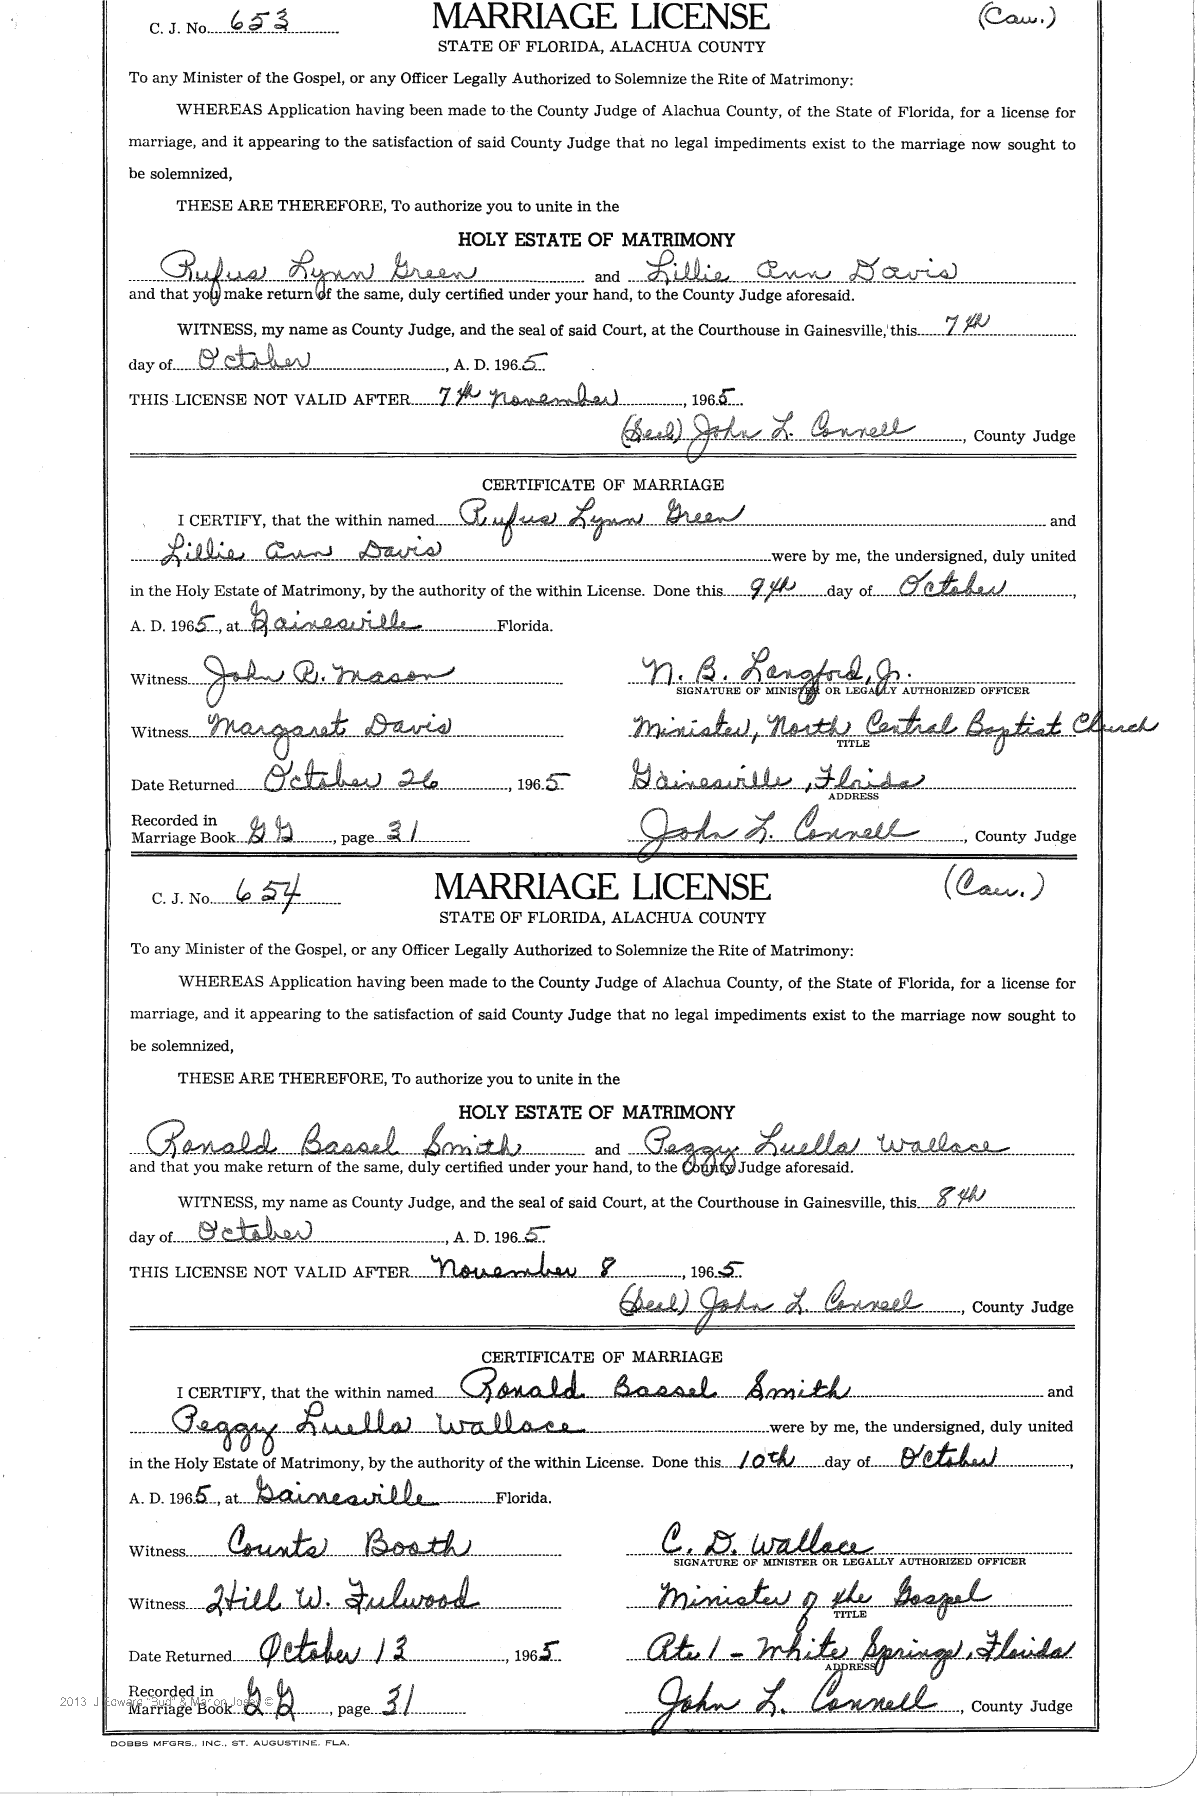 C. J. No. 653 MARRIAGE LICENSE (Cau.)
STATE OF FLORIDA, ALACHUA COUNTY
To any Minister of the Gospel, or any Officer Legally Authorized to Solemnize the Rite of Matrimony:
WHEREAS Application having been made to the County Judge of Alachua County, of the State of Florida, for a license for
marriage, and it appearing to the satisfaction of said County Judge that no legal impediments exist to the marriage now sought to
be solemnized,
THESE ARE THEREFORE, To authorize you to unite in the
HOLY ESTATE OF MATRIMONY
Rufus Lynn Green and Lillie Ann Davis
and that you make return of the same, duly certified under your hand, to the County Judge aforesaid.
WITNESS, my name as County Judge, and the seal of said Court, at the Courthouse in Gainesville, this 7th
day of October, A. D. 1965
THIS LICENSE NOT VALID AFTER 7th November, 1965.
(Seal) John L. Connell, County Judge
CERTIFICATE OF MARRIAGE
I CERTIFY, that the within named Rufus Lynn Green and
Lillie Ann Davis were by me, the undersigned, duly united
in the Holy Estate of Matrimony, by the authority of the within License. Done this 9th day of October,
A. D. 1965, at Gainesville Florida.
Witness John R. Mason N. B. Langford, Jr.
SIGNATURE OF MINISTER OR LEGALLY AUTHORIZED OFFICER
Witness Margaret Davis Minister, North Central Baptist Church
TITLE
Date Returned October 26, 1965 Gainesville, Florida
ADDRESS
Recorded in
Marriage Book GG, page 31 John L. Connell, County Judge
C. J. No. 654 MARRIAGE LICENSE (Cau.)
STATE OF FLORIDA, ALACHUA COUNTY
To any Minister of the Gospel, or any Officer Legally Authorized to Solemnize the Rite of Matrimony:
WHEREAS Application having been made to the County Judge of Alachua County, of the State of Florida, for a license for
marriage, and it appearing to the satisfaction of said County Judge that no legal impediments exist to the marriage now sought to
be solemnized,
THESE ARE THEREFORE, To authorize you to unite in the
HOLY ESTATE OF MATRIMONY
Ronald Bassel Smith and Peggy Luella Wallace
and that you make return of the same, duly certified under your hand, to the County Judge aforesaid.
WITNESS, my name as County Judge, and the seal of said Court, at the Courthouse in Gainesville, this 8th
day of October, A. D. 1965.
THIS LICENSE NOT VALID AFTER November 8, 1965.
(Seal) John L. Connell, County Judge
CERTIFICATE OF MARRIAGE
I CERTIFY, that the within named Ronald Bassel Smith and
Peggy Luella Wallace were by me, the undersigned, duly united
in the Holy Estate of Matrimony, by the authority of the within License. Done this 10th day of October,
A. D. 1965, at Gainesville Florida.
Witness Counts Booth C. D. Wallace
SIGNATURE OF MINISTER OR LEGALLY AUTHORIZED OFFICER
Witness Hill W. Fulwood Minister of the Gospel
TITLE
Date Returned October 13, 1965 Rte 1 - White Springs, Florida
ADDRESS
Recorded in
2013 J Edward "Bud" & Marion Josey ©
Marriage Book GG, page 31 John L. Connell, County Judge
DOBBS MFGRS., INC., ST. AUGUSTINE, FLA.